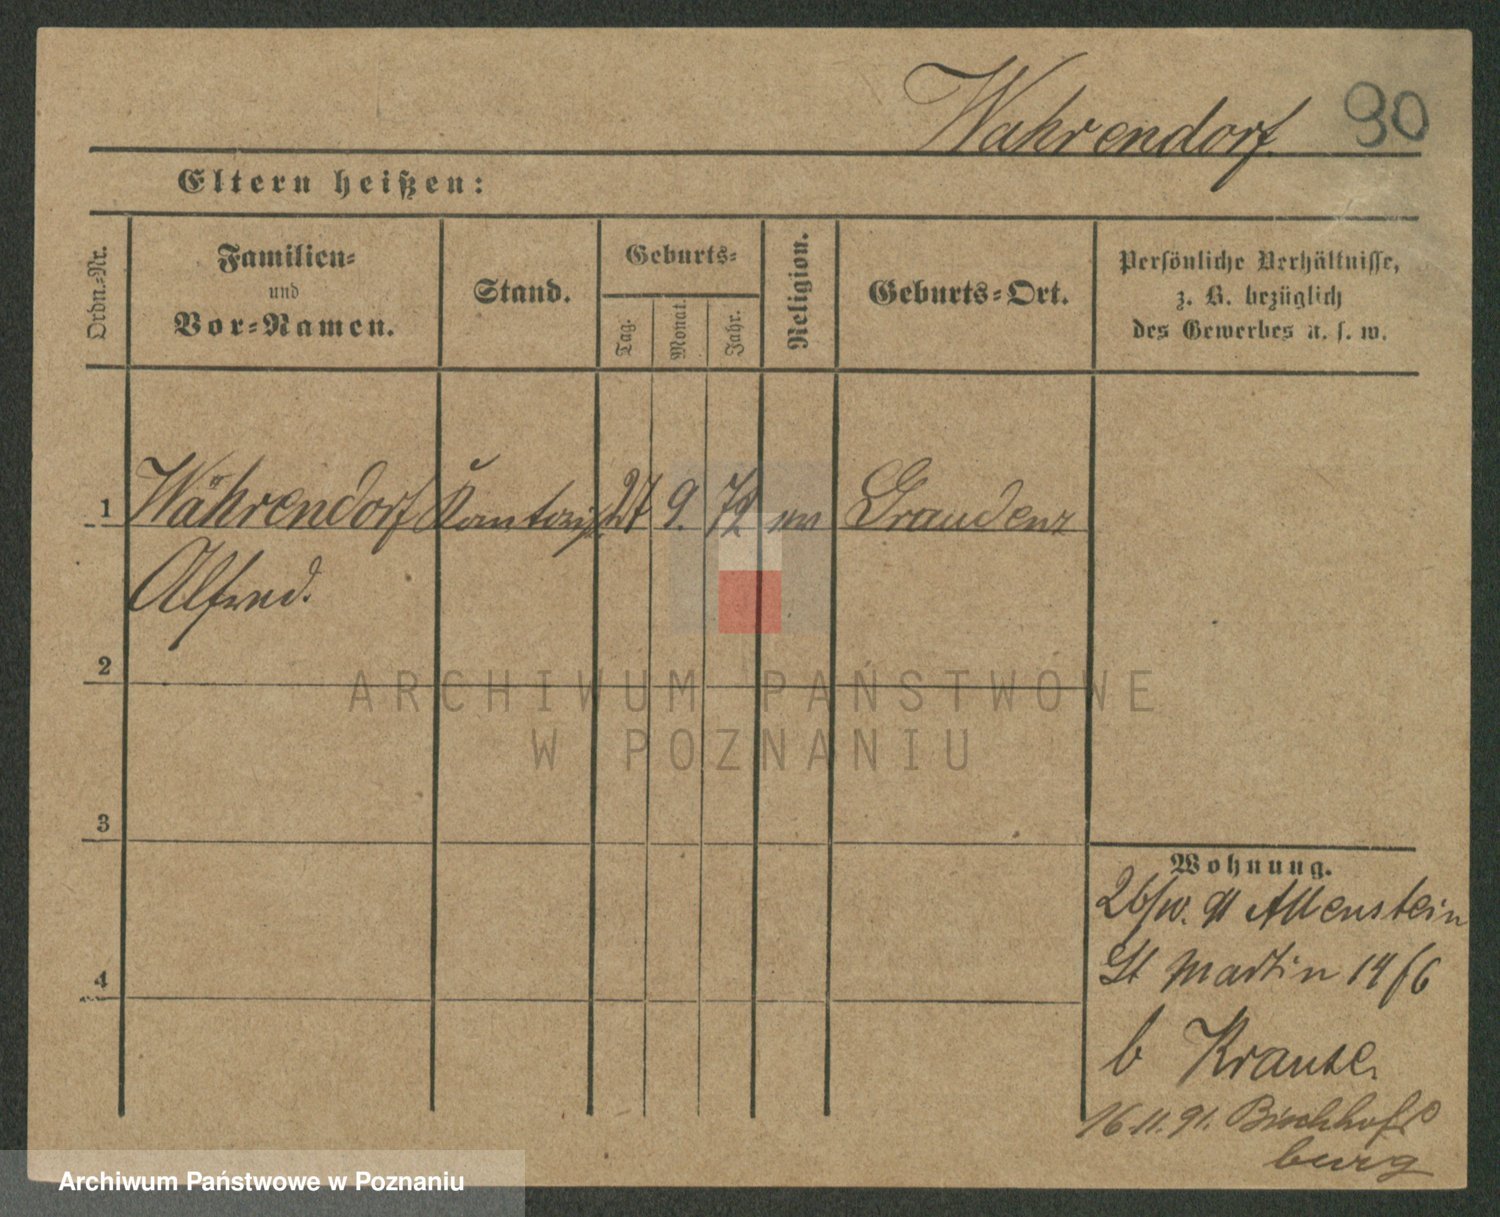 Wahrendorf. 90
Eltern heißen:
Ordn.-Nr.
Familien-
und
Vor-Namen.
Stand.
Geburts-
Tag.
Monat.
Jahr.
Religion.
Geburts-Ort.
Persönliche Verhältnisse,
z. B. bezüglich
des Gewerbes u. s. w.
1 Währendorf 27 9. 72 Graudenz
Alfred.
2
ARCHIWUM PAŃSTWOWE
W POZNANIU
3
Wohnung.
Allenstein
St Martin
4
b Krause
16.11.91. Bischhofs
burg
Archiwum Państwowe w Poznaniu